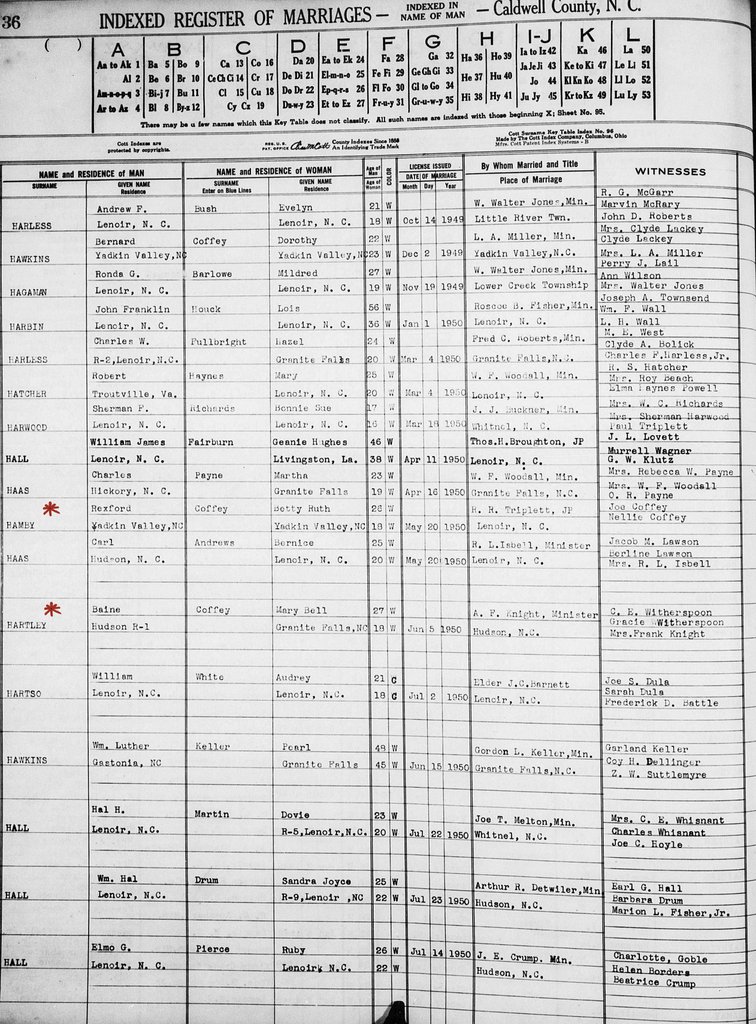 36
INDEXED REGISTER OF MARRIAGES — INDEXED IN NAME OF MAN — Caldwell County, N. C.
( )
A B C D E F G H I-J K L
Aa to Ak 1 Ba 5 Bo 9 Ca 13 Co 16 Da 20 Ea to Ek 24 Fa 28 Ga 32 Ha 36 Ho 39 Ia to Iz 42 Ka 46 La 50
Al 2 Be 6 Br 10 Ce Ch Ci 14 Cr 17 De Di 21 El-m-n-o 25 Fe Fi 29 Ge Gh Gi 33 He 37 Hu 40 Ja Je Ji 43 Ke to Ki 47 Le Li 51
Am-n-o-p-q 3 Bi-j 7 Bu 11 Cl 15 Cu 18 Do Dr 22 Ep-q-r-s 26 Fl Fo 30 Gl to Go 34 Hi 38 Hy 41 Jo 44 Kl Kn Ko 48 Ll Lo 52
Ar to Az 4 Bl 8 By-z 12 Cy Cz 19 Du-w-y 23 Et to Ez 27 Fr-u-y 31 Gr-u-w-y 35 Ju Jy 45 Kr to Kz 49 Lu Ly 53
There may be a few names which this Key Table does not classify. All such names are indexed with those beginning X; Sheet No. 95.
Cott Indexes are protected by copyrights.
REG. U. S. PAT. OFFICE County Indexes Since 1888 An Identifying Trade Mark
Cott Surname Key Table Index No. 96
Made by The Cott Index Company, Columbus, Ohio
Mfrs. Cott Patent Index Systems - B
NAME and RESIDENCE of MAN NAME and RESIDENCE of WOMAN Age of Man Age of Woman COLOR LICENSE ISSUED By Whom Married and Title WITNESSES
SURNAME GIVEN NAME Residence SURNAME Enter on Blue Lines GIVEN NAME Residence DATE OF MARRIAGE Month Day Year Place of Marriage
Andrew F. Bush Evelyn 21 W W. Walter Jones, Min. R. G. McGarr
Marvin McRary
HARLESS Lenoir, N. C. Lenoir, N. C. 18 W Oct 14 1949 Little River Twn. John D. Roberts
Bernard Coffey Dorothy 22 W L. A. Miller, Min. Mrs. Clyde Lackey
Clyde Lackey
HAWKINS Yadkin Valley,NC Yadkin Valley,NC 23 W Dec 2 1949 Yadkin Valley,N.C. Mrs. L. A. Miller
Ronda G. Barlowe Mildred 27 W W. Walter Jones,Min. Perry J. Lail
Ann Wilson
HAGAMAN Lenoir, N. C. Lenoir, N. C. 19 W Nov 19 1949 Lower Creek Township Mrs. Walter Jones
John Franklin Houck Lois 56 W Roscoe B. Fisher,Min. Joseph A. Townsend
Wm. F. Wall
HARBIN Lenoir, N. C. Lenoir, N. C. 36 W Jan 1 1950 Lenoir, N. C. L. H. Wall
Charles W. Fullbright Hazel 24 W Fred C. Roberts,Min. M. E. West
Clyde A. Bolick
HARLESS R-2,Lenoir,N.C. Granite Falls 20 W Mar 4 1950 Granite Falls,N.C. Charles F.Harless,Jr.
Robert Haynes Mary 25 W W. F. Woodall, Min. R. S. Hatcher
Mrs. Roy Beach
HATCHER Troutville, Va. Lenoir, N. C. 20 W Mar 4 1950 Lenoir, N. C. Elma Haynes Powell
Sherman F. Richards Bonnie Sue 17 W J. J. Buckner, Min. Mrs. W. C. Richards
Mrs. Sherman Harwood
HARWOOD Lenoir, N. C. Lenoir, N. C. 16 W Mar 18 1950 Whitnel, N. C. Paul Triplett
William James Fairburn Geanie Hughes 46 W Thos.H.Broughton, JP J. L. Lovett
Murrell Wagner
HALL Lenoir, N. C. Livingston, La. 38 W Apr 11 1950 Lenoir, N. C. G. W. Klutz
Charles Payne Martha 23 W W. F. Woodall, Min. Mrs. Rebecca W. Payne
Mrs. W. F. Woodall
HAAS Hickory, N. C. Granite Falls 19 W Apr 16 1950 Granite Falls, N.C. O. R. Payne
* Rexford Coffey Betty Ruth 26 W R. R. Triplett, JP Joe Coffey
Nellie Coffey
HAMBY Yadkin Valley,NC Yadkin Valley,NC 18 W May 20 1950 Lenoir, N. C.
Carl Andrews Bernice 25 W R. L.Isbell, Minister Jacob M. Lawson
Berline Lawson
HAAS Hudson, N. C. Lenoir, N. C. 20 W May 20 1950 Lenoir, N. C. Mrs. R. L. Isbell
* Baine Coffey Mary Bell 27 W A. F. Knight, Minister C. E. Witherspoon
Gracie Witherspoon
HARTLEY Hudson R-1 Granite Falls,NC 18 W Jun 5 1950 Hudson, N.C. Mrs.Frank Knight
William White Audrey 21 C Elder J.C.Barnett Joe S. Dula
Sarah Dula
HARTSO Lenoir, N.C. Lenoir, N.C. 18 C Jul 2 1950 Lenoir, N.C. Frederick D. Battle
Wm. Luther Keller Pearl 48 W Gordon L. Keller,Min. Garland Keller
Coy H. Dellinger
HAWKINS Gastonia, NC Granite Falls 45 W Jun 15 1950 Granite Falls,N.C. Z. W. Suttlemyre
Hal H. Martin Dovie 23 W Joe T. Melton,Min. Mrs. C. E. Whisnant
Charles Whisnant
HALL Lenoir, N.C. R-5,Lenoir,N.C. 20 W Jul 22 1950 Whitnel, N.C. Joe C. Hoyle
Wm. Hal Drum Sandra Joyce 25 W Arthur R. Detwiler,Min Earl G. Hall
Barbara Drum
HALL Lenoir, N.C. R-9,Lenoir ,NC 22 W Jul 23 1950 Hudson, N.C. Marion L. Fisher,Jr.
Elmo G. Pierce Ruby 26 W Jul 14 1950 J. E. Crump. Min. Charlotte, Goble
Helen Borders
HALL Lenoir, N. C. Lenoir, N.C. 22 W Hudson, N.C. Beatrice Crump